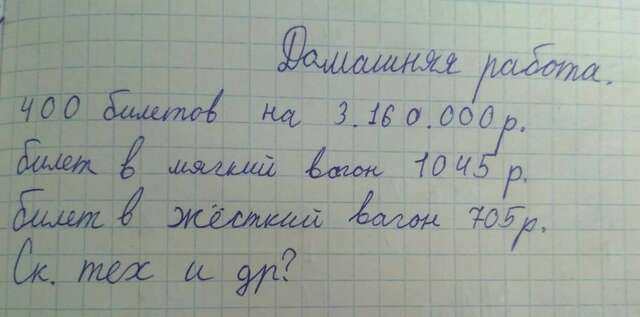 Домашняя работа.
400 билетов на 3.160.000р.
билет в мягкий вагон 1045р.
билет в жёсткий вагон 705р.
Ск. тех и др?